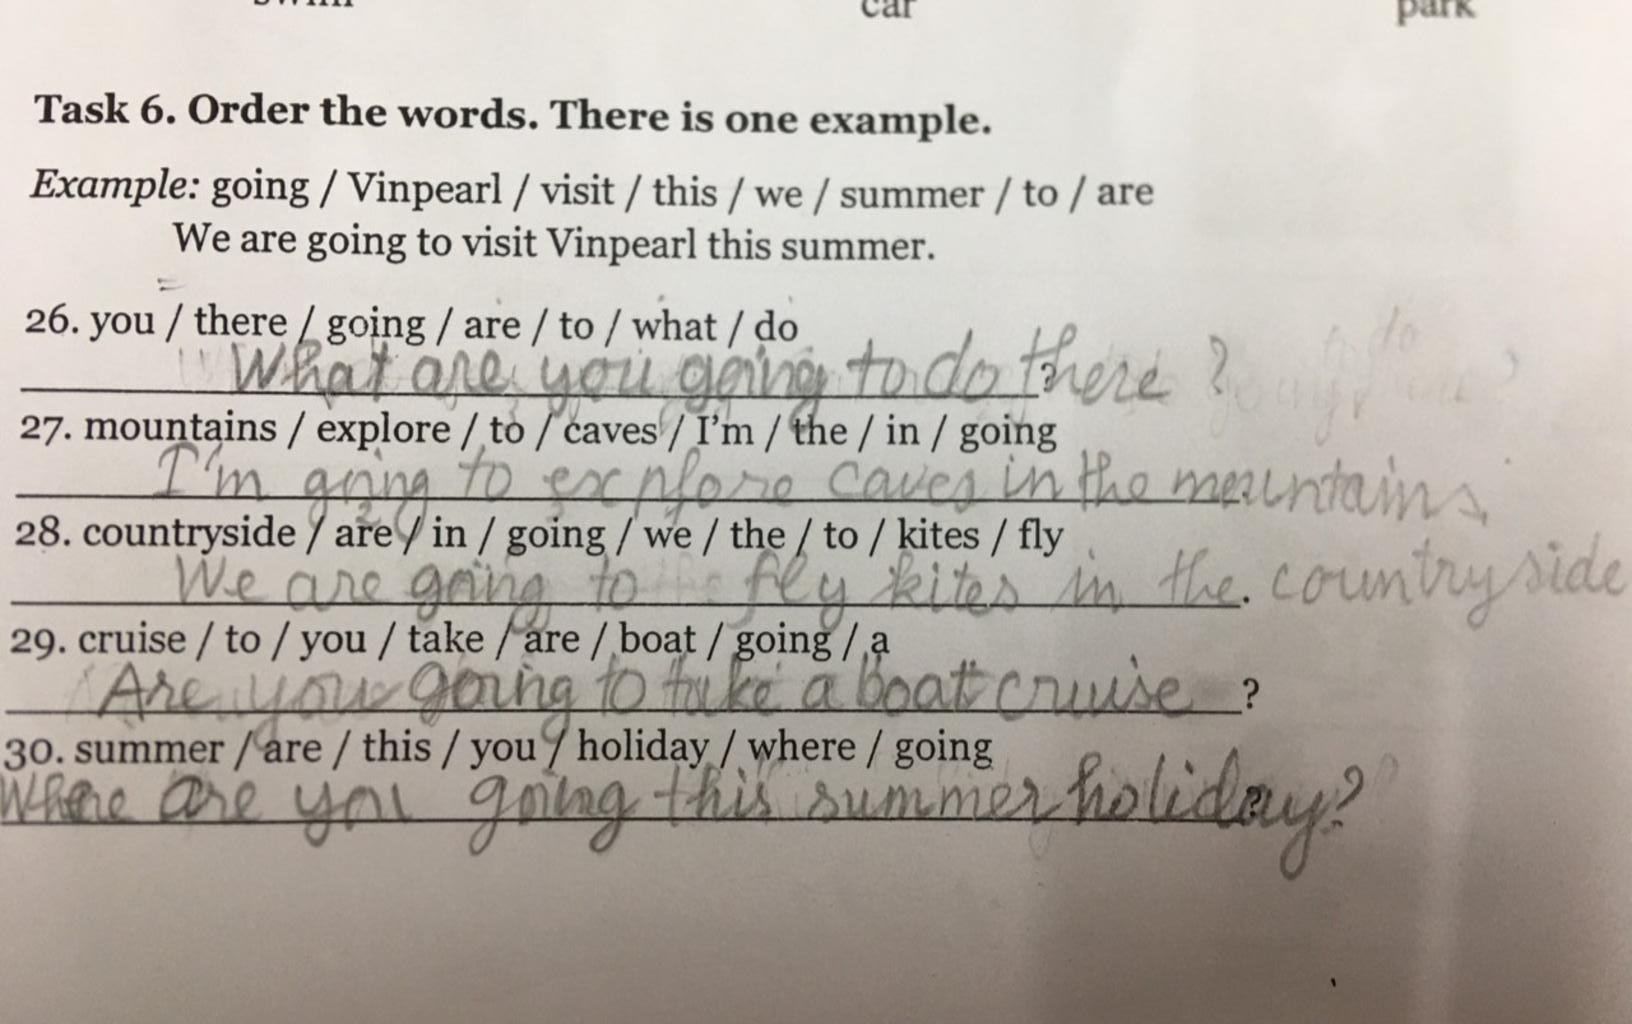 swim car park
Task 6. Order the words. There is one example.
Example: going / Vinpearl / visit / this / we / summer / to / are
We are going to visit Vinpearl this summer.
26. you / there / going / are / to / what / do
What are you going to do there ?
27. mountains / explore / to / caves / I'm / the / in / going
I'm going to explore caves in the mountains.
28. countryside / are / in / going / we / the / to / kites / fly
We are going to fly kites in the. countryside
29. cruise / to / you / take / are / boat / going / a
Are you going to take a boat cruise ?
30. summer / are / this / you / holiday / where / going
Where are you going this summer holiday?